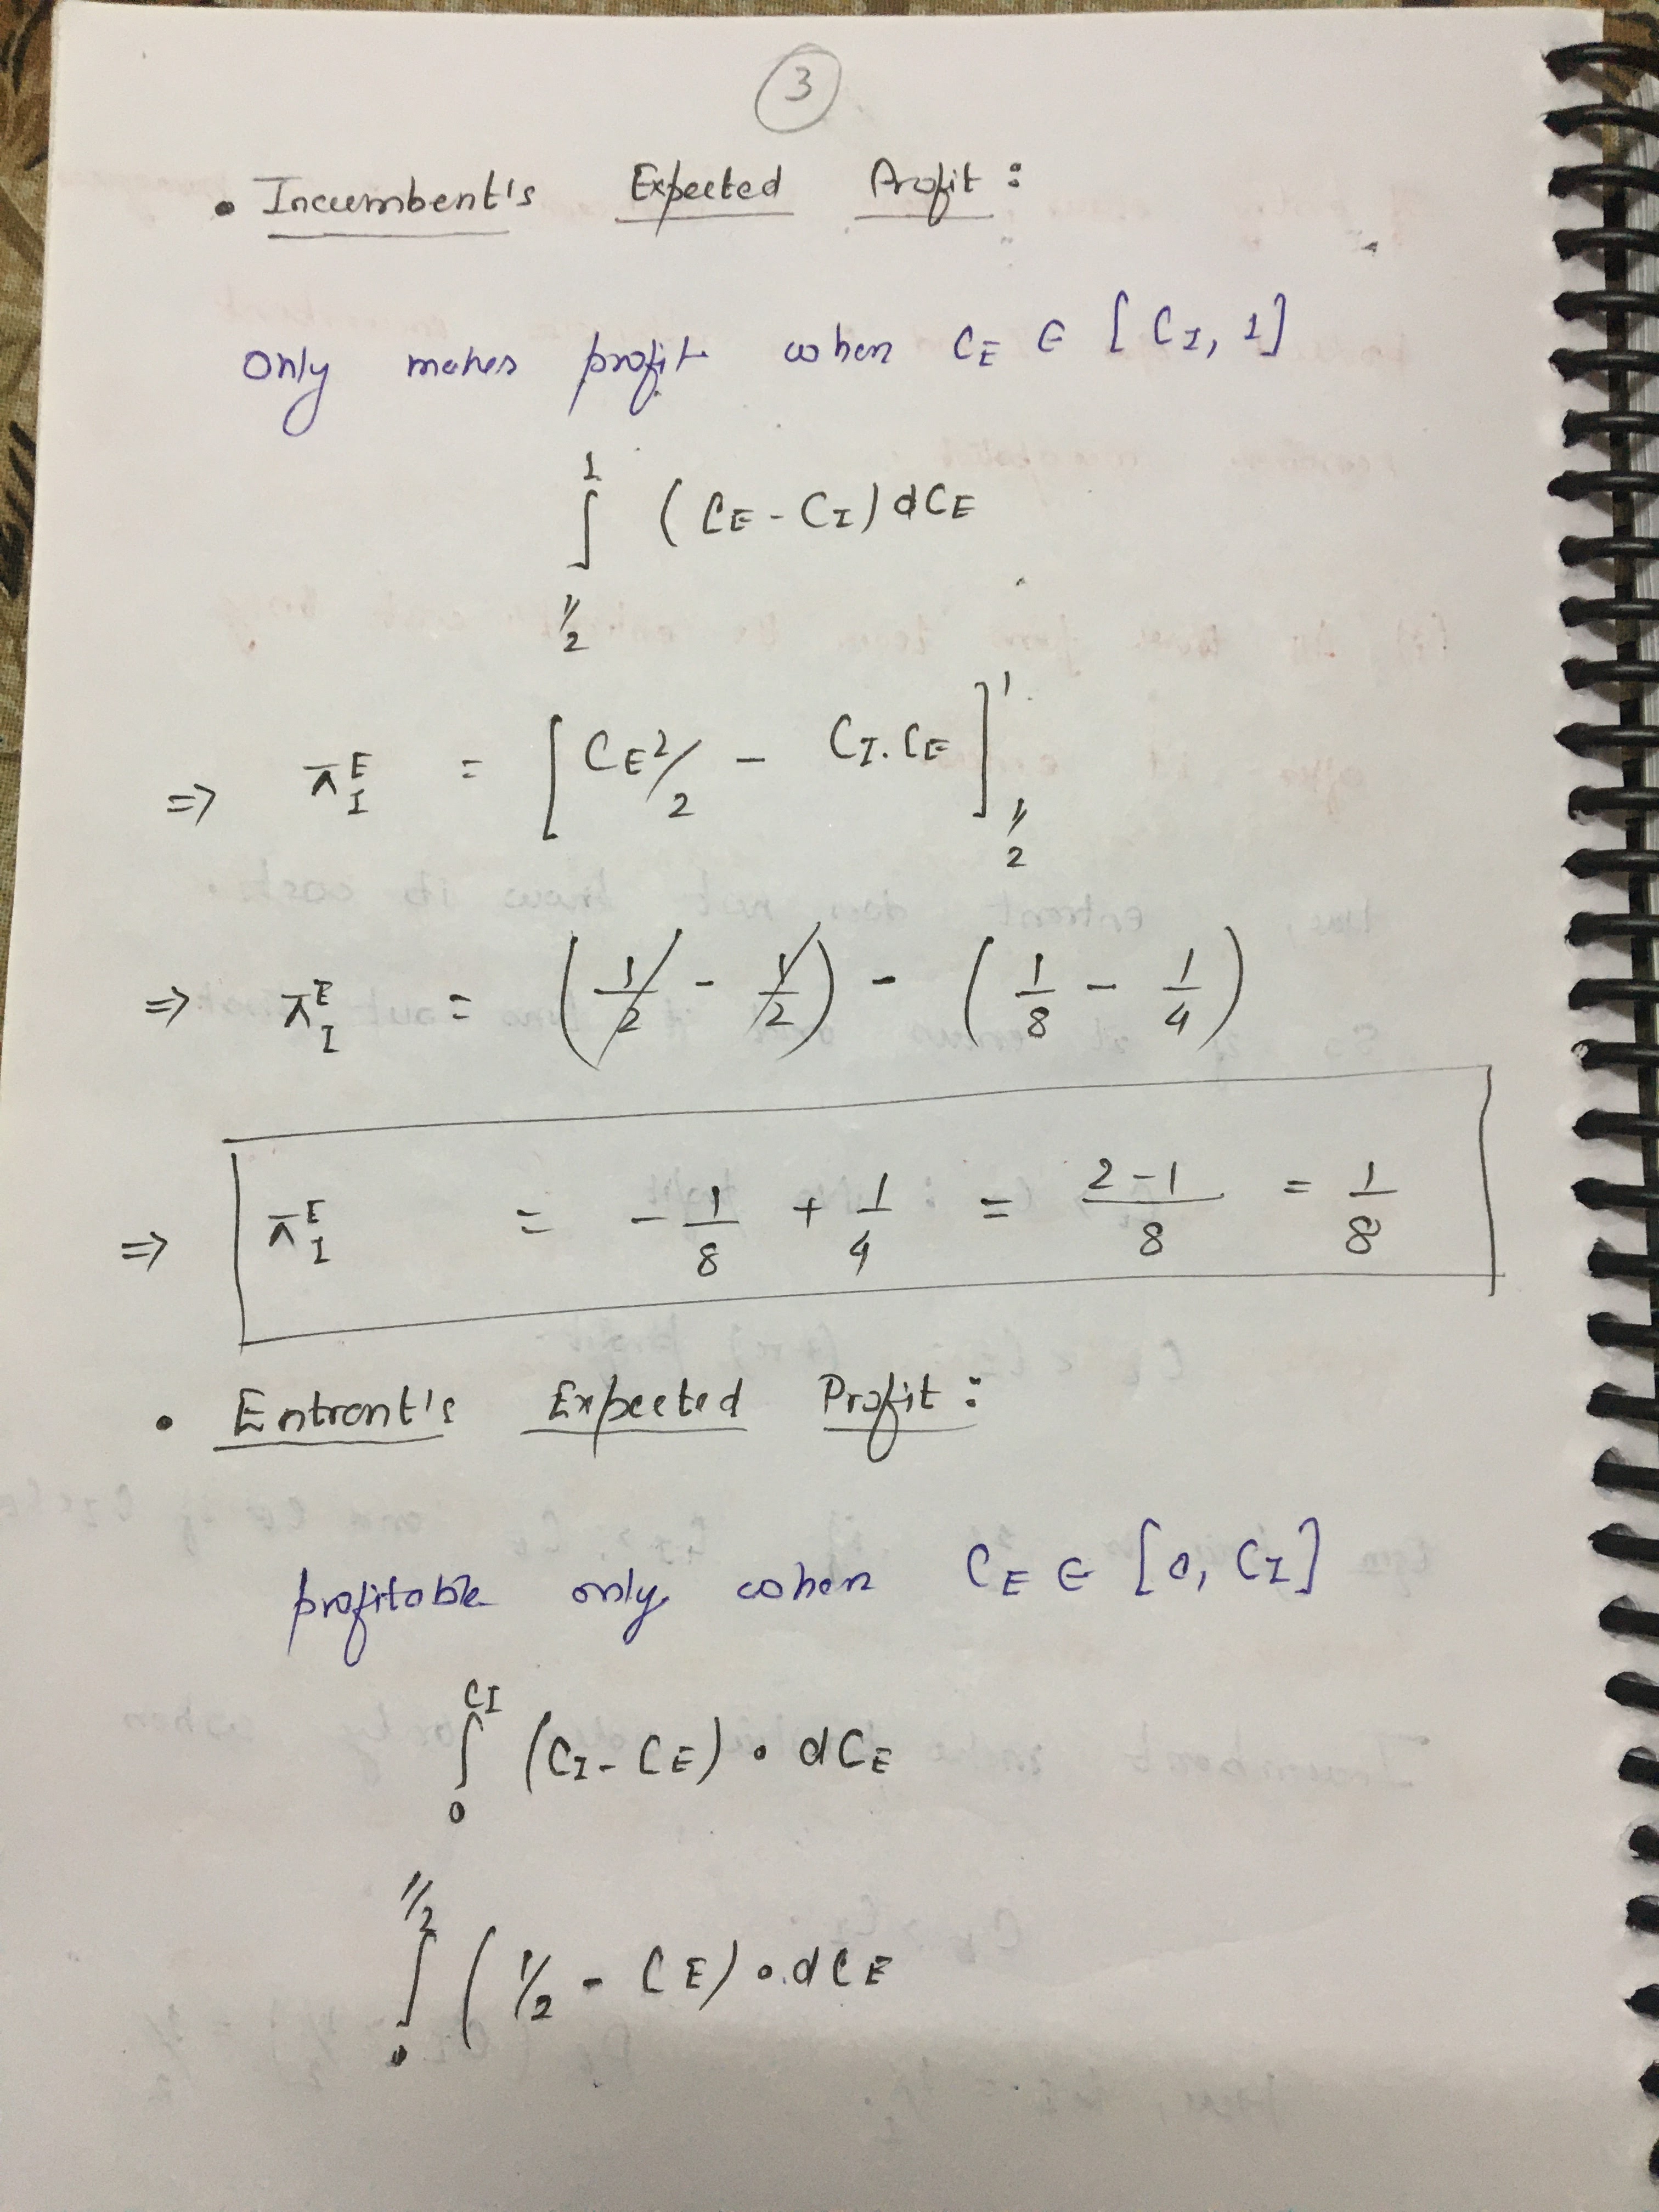 3
• Incumbent's Expected Profit:
Only makes profit when C_E ∈ [C_I, 1]
∫_{1/2}^{1} (C_E - C_I) dC_E
⇒ π_I^E = [C_E²/2 - C_I . C_E]_{1/2}^{1}
⇒ π_I^E = (1/2 - 1/2) - (1/8 - 1/4)
⇒ π_I^E = -1/8 + 1/4 = (2-1)/8 = 1/8
• Entrant's Expected Profit:
profitable only when C_E ∈ [0, C_I]
∫_{0}^{C_I} (C_I - C_E) • dC_E
∫_{0}^{1/2} (1/2 - C_E) • dC_E